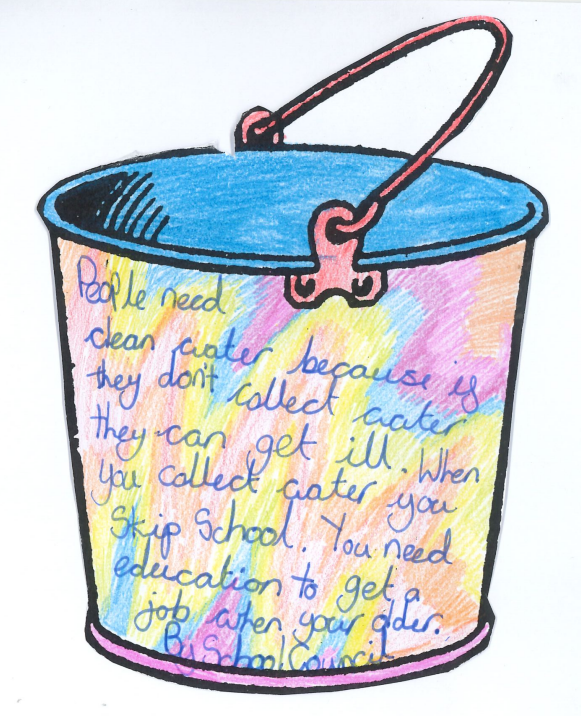 People need
clean water because if
they don't collect water
they can get ill. When
you collect water you
Skip School. You need
education to get a
job when your older.
By School Council